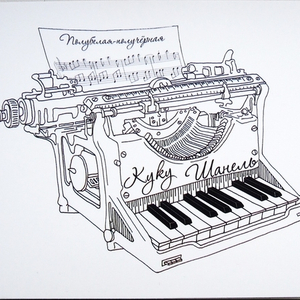 Полубелая-получёрная
Куку Шанель